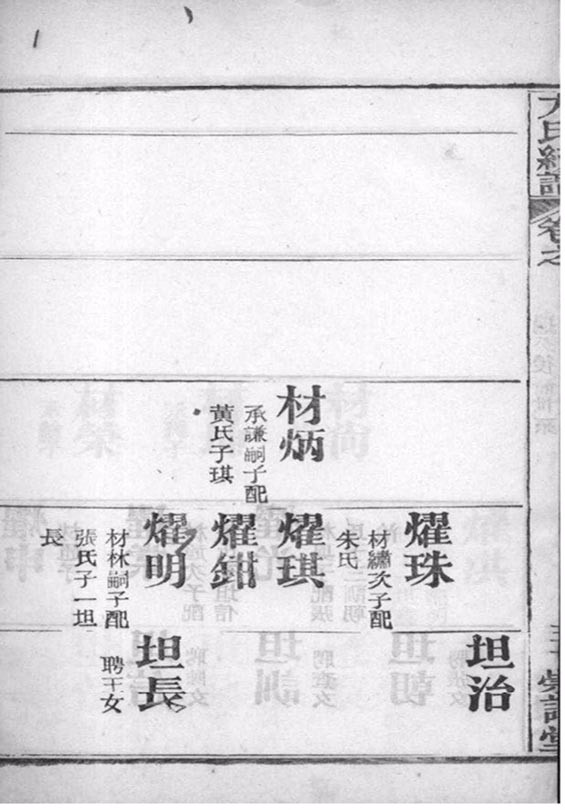 方氏續譜
卷之
材炳
承謙嗣子配
黃氏子琪
燿珠
材繡次子配
朱氏
燿琪
燿鉗
燿明
材林嗣子配
張氏子一坦
長
坦治
坦長
聘王女